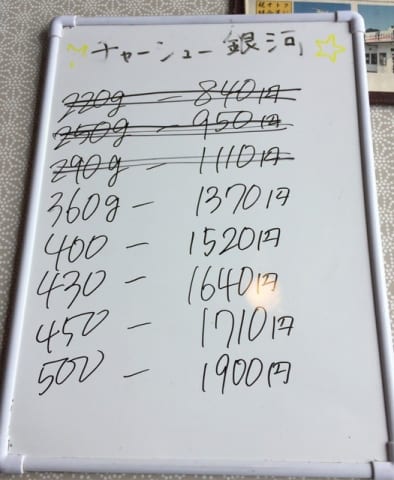 チャーシュー銀河
220g - 840円
250g - 950円
290g - 1110円
360g - 1370円
400 - 1520円
430 - 1640円
450 - 1710円
500 - 1900円